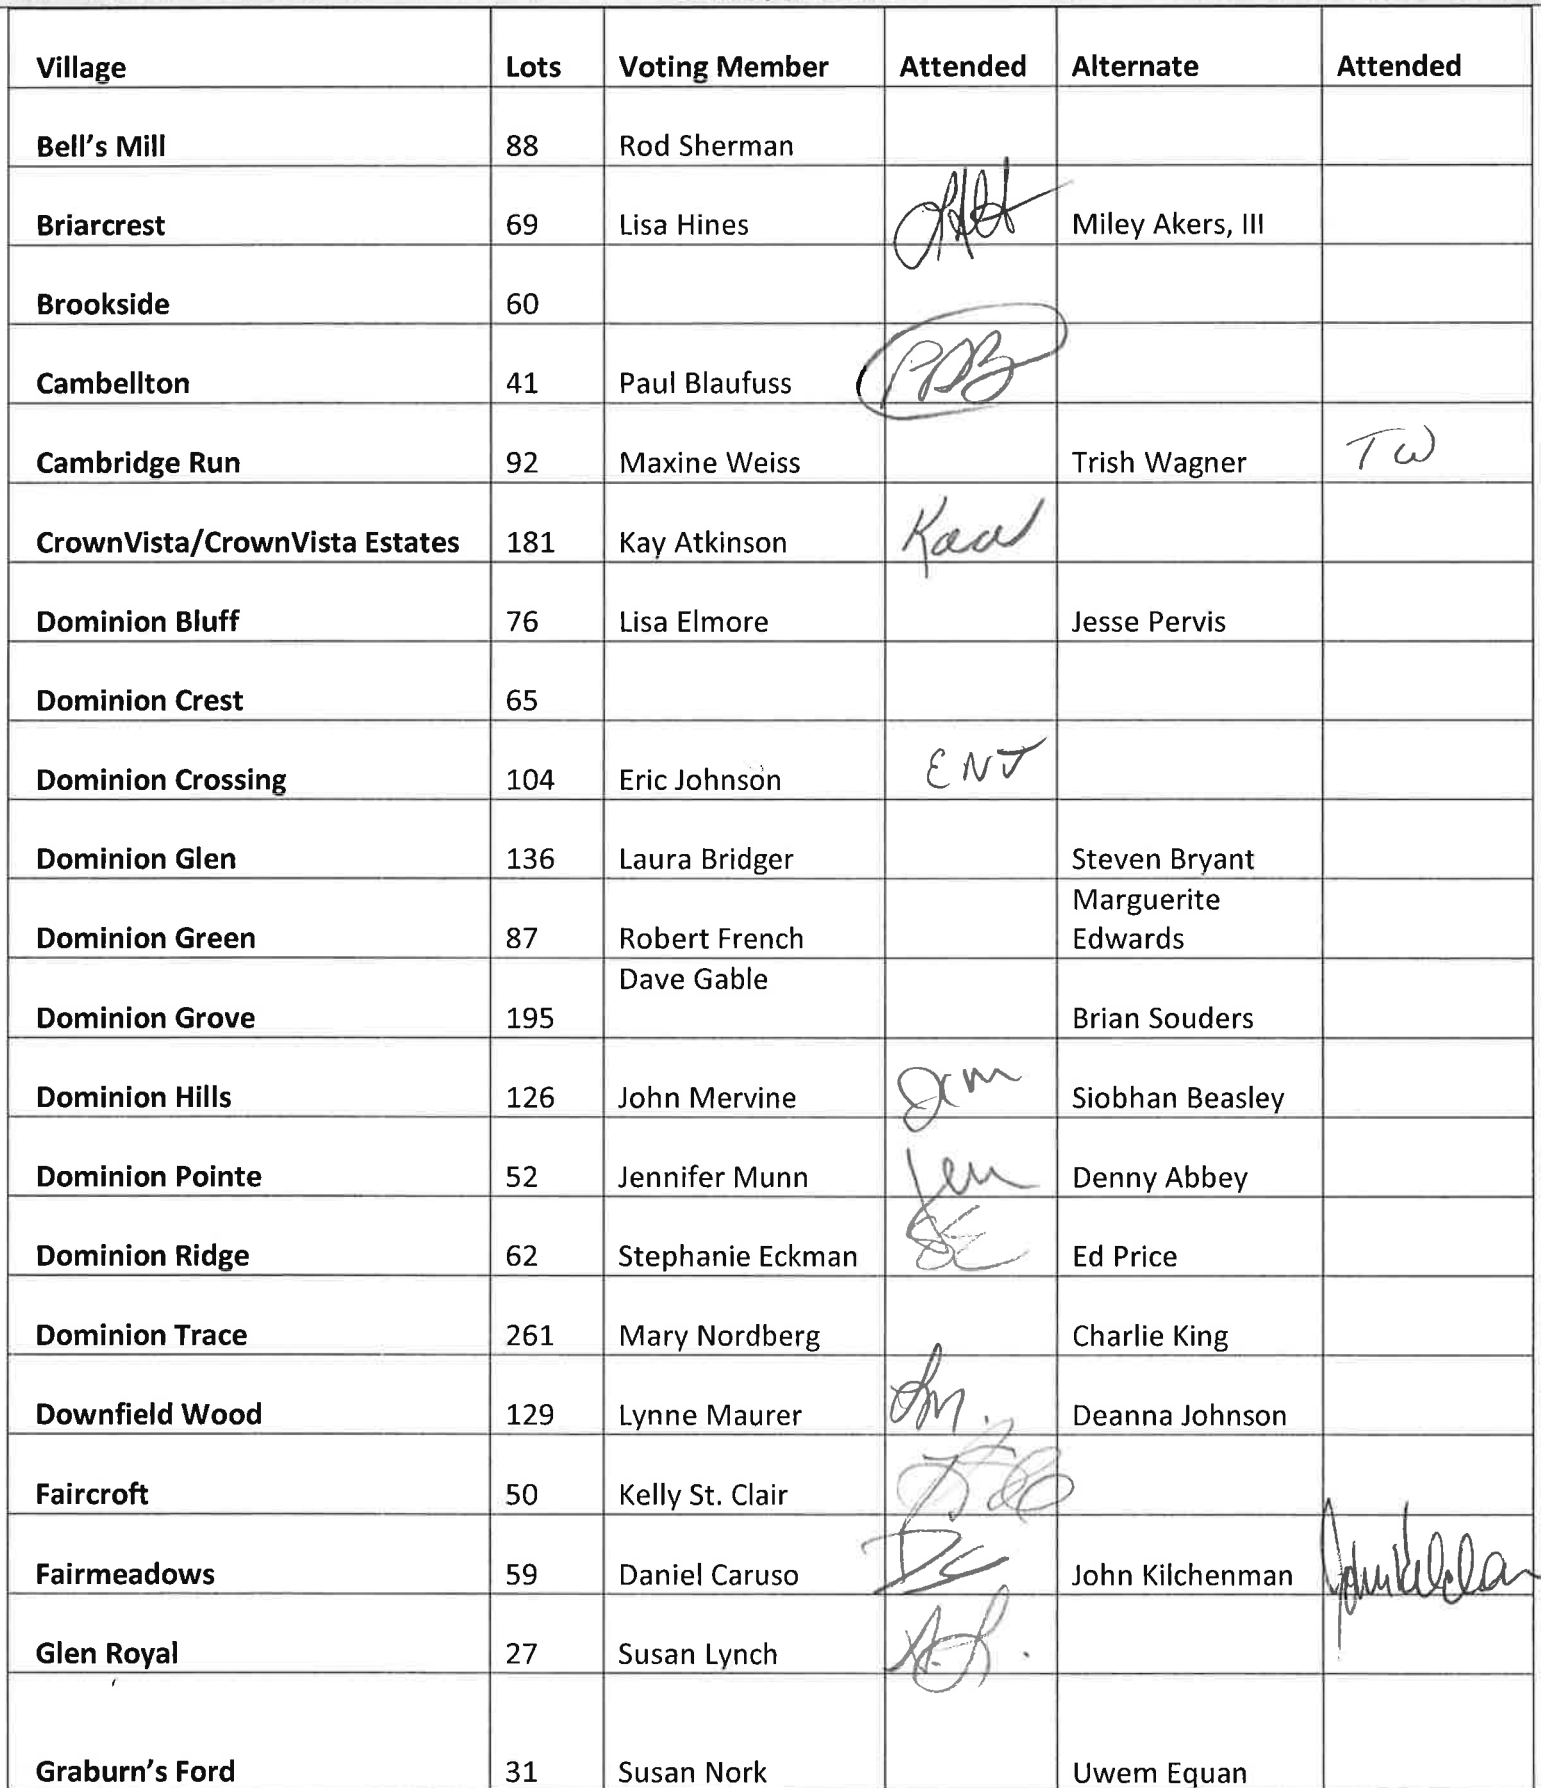 Village Lots Voting Member Attended Alternate Attended
Bell's Mill 88 Rod Sherman
Briarcrest 69 Lisa Hines Miley Akers, III
Brookside 60
Cambellton 41 Paul Blaufuss PDB
Cambridge Run 92 Maxine Weiss Trish Wagner TW
CrownVista/CrownVista Estates 181 Kay Atkinson
Dominion Bluff 76 Lisa Elmore Jesse Pervis
Dominion Crest 65
Dominion Crossing 104 Eric Johnson ENJ
Dominion Glen 136 Laura Bridger Steven Bryant
Marguerite
Dominion Green 87 Robert French Edwards
Dave Gable
Dominion Grove 195 Brian Souders
Dominion Hills 126 John Mervine Siobhan Beasley
Dominion Pointe 52 Jennifer Munn Jen Denny Abbey
Dominion Ridge 62 Stephanie Eckman SE Ed Price
Dominion Trace 261 Mary Nordberg Charlie King
Downfield Wood 129 Lynne Maurer Lm. Deanna Johnson
Faircroft 50 Kelly St. Clair
Fairmeadows 59 Daniel Caruso DC John Kilchenman
Glen Royal 27 Susan Lynch
Graburn's Ford 31 Susan Nork Uwem Equan